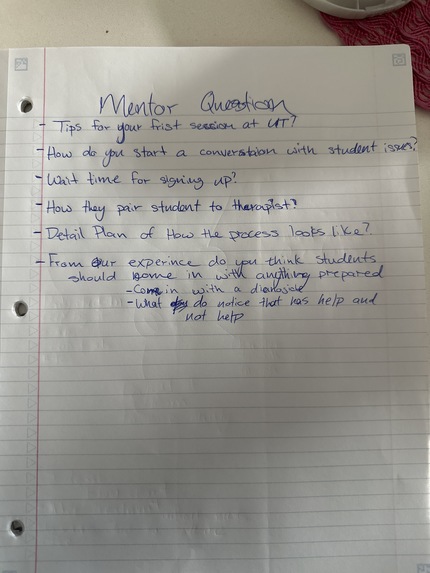 Mentor Question
- Tips for your frist session at UT?
- How do you start a converstion with student issues?
- Wait time for signing up?
- How they pair student to therapist?
- Detail Plan of How the process looks like?
- From our experince do you think students
should come in with anything prepared
- Come in with a
- What do notice that has help and
not help